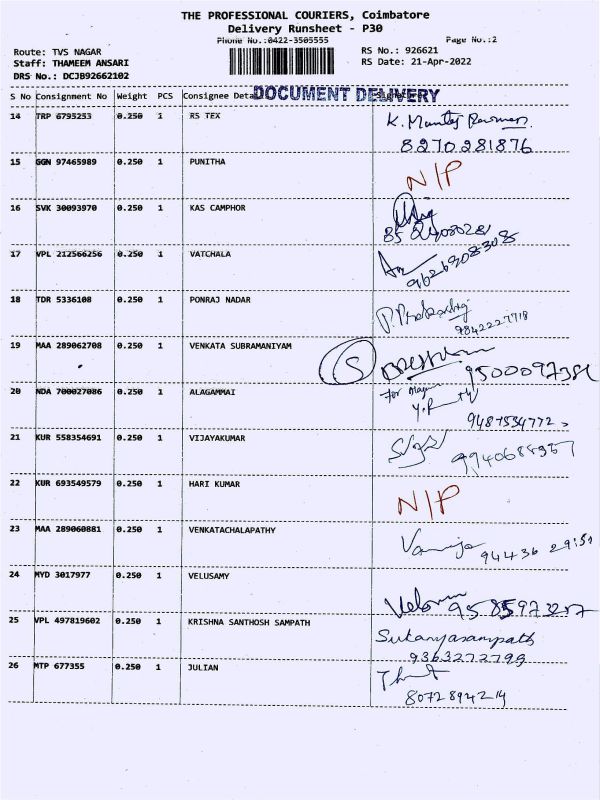 THE PROFESSIONAL COURIERS, Coimbatore
Delivery Runsheet - P30
Phone No.:0422-3505555
Page No.:2
Route: TVS NAGAR
Staff: THAMEEM ANSARI
DRS No.: DCJB92662102
RS No.: 926621
RS Date: 21-Apr-2022
S No Consignment No Weight PCS Consignee Deta DOCUMENT DELIVERY
14 TRP 6795253 0.250 1 RS TEX K.
8270281876
15 GGN 97465989 0.250 1 PUNITHA N/P
16 SVK 30093970 0.250 1 KAS CAMPHOR
17 VPL 212566256 0.250 1 VATCHALA
18 TDR 5336108 0.250 1 PONRAJ NADAR
9842227718
19 MAA 289062708 0.250 1 VENKATA SUBRAMANIYAM S
20 NDA 700027086 0.250 1 ALAGAMMAI For
21 KUR 558354691 0.250 1 VIJAYAKUMAR
22 KUR 693549579 0.250 1 HARI KUMAR N/P
23 MAA 289060881 0.250 1 VENKATACHALAPATHY
94436 29151
24 MYD 3017977 0.250 1 VELUSAMY
25 VPL 497819602 0.250 1 KRISHNA SANTHOSH SAMPATH Sukanyasampath
9363272799
26 MTP 677355 0.250 1 JULIAN
8072894219